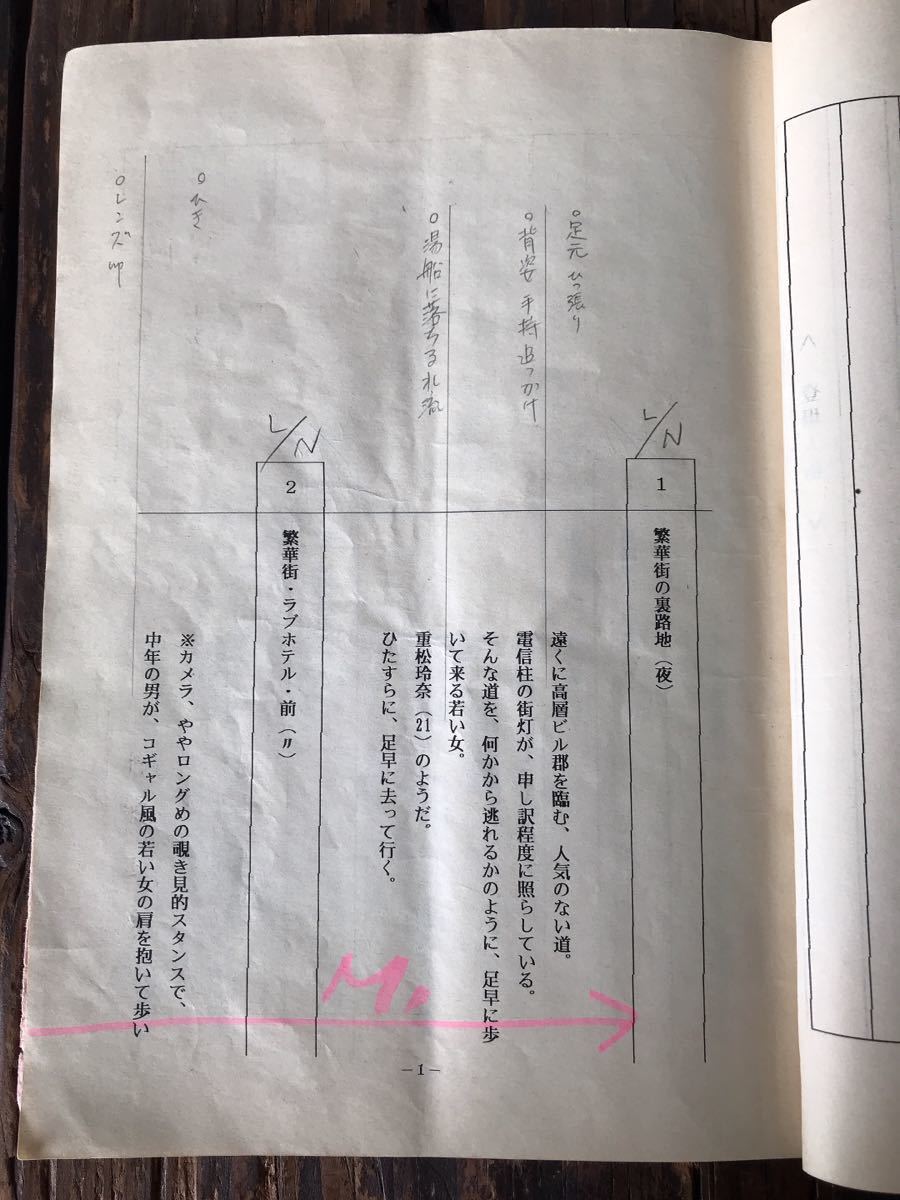 L/N
1
繁華街の裏路地（夜）
○足元 ひっ張り
遠くに高層ビル郡を臨む、人気のない道。
○背姿 手持 追っかけ
電信柱の街灯が、申し訳程度に照らしている。
そんな道を、何かから逃れるかのように、足早に歩
いて来る若い女。
○湯船に落ちる
重松玲奈（21）のようだ。
ひたすらに、足早に去って行く。
L/N
2
繁華街・ラブホテル・前（〃）
○ひき
※カメラ、ややロングめの覗き見的スタンスで、
○レンズ
中年の男が、コギャル風の若い女の肩を抱いて歩い
M
－1－